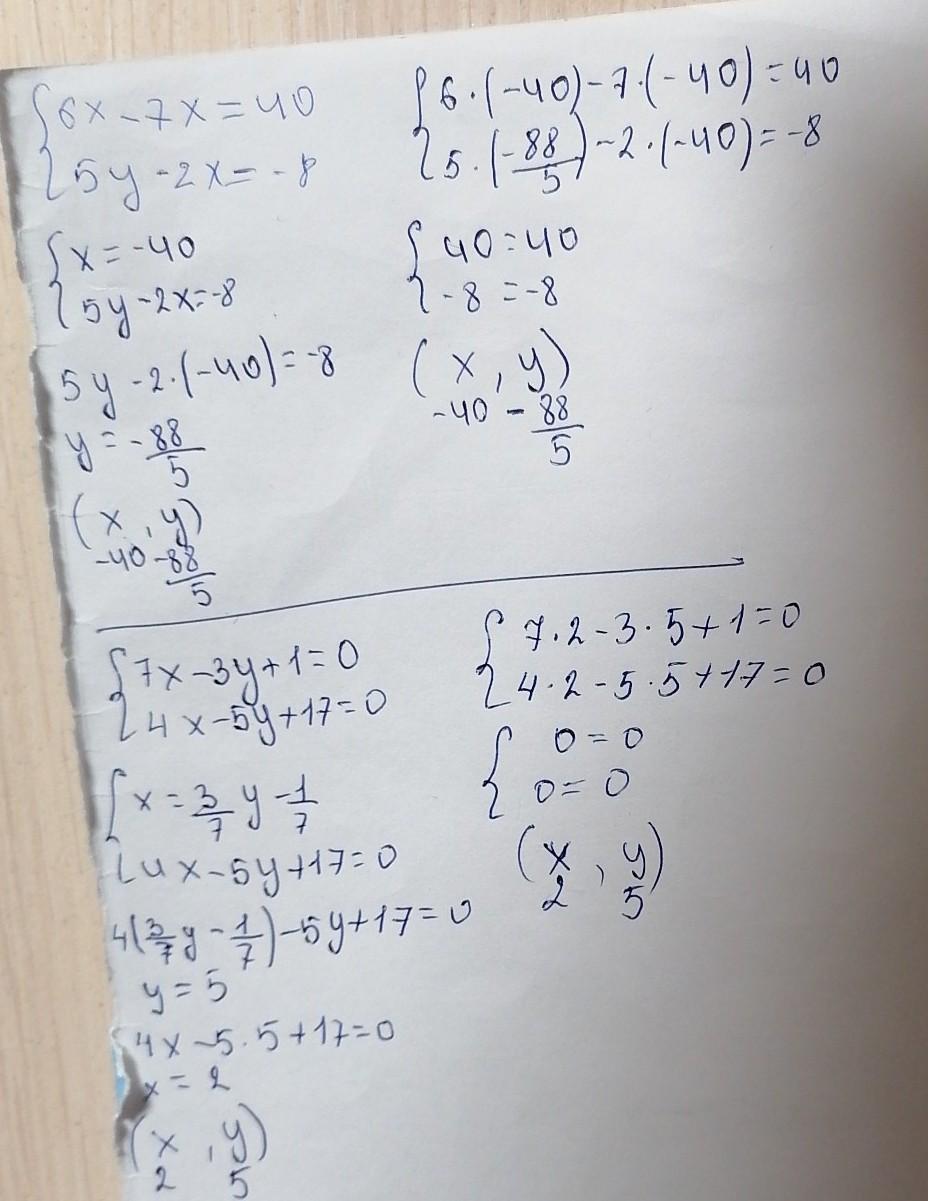 {6x - 7x = 40
{5y - 2x = -8
{x = -40
{5y - 2x = -8
5y - 2·(-40) = -8
y = -88/5
(x, y)
-40 -88/5
{6·(-40) - 7·(-40) = 40
{5·(-88/5) - 2·(-40) = -8
{40 = 40
{-8 = -8
(x, y)
-40 -88/5
{7x - 3y + 1 = 0
{4x - 5y + 17 = 0
{x = 3/7 y - 1/7
{4x - 5y + 17 = 0
4(3/7 y - 1/7) - 5y + 17 = 0
y = 5
4x - 5·5 + 17 = 0
x = 2
(x, y)
2 5
{7·2 - 3·5 + 1 = 0
{4·2 - 5·5 + 17 = 0
{0 = 0
{0 = 0
(x, y)
2 5